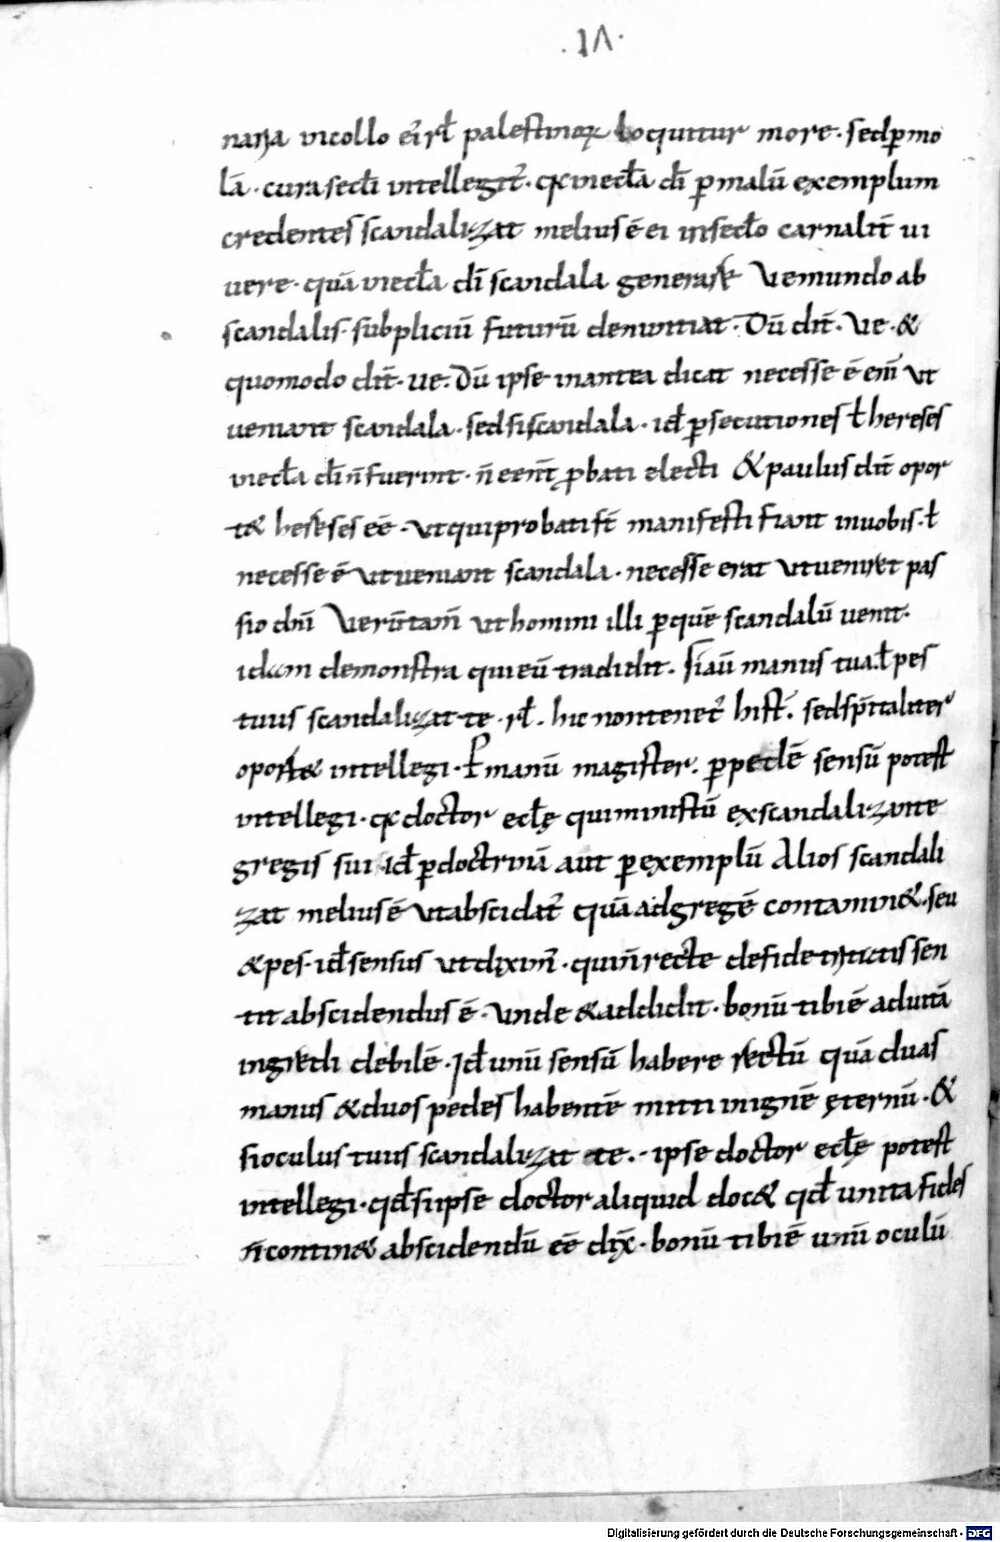 .IΛ.
naria in collo ei rł palestinoꝝ loquitur more. sed ꝑ mo
lā. cura sec̄li intellegit̄. qͥ in ecl̄a dī ꝑ malū exemplum
credentes scandalizat melius ē ei in sec̄lo carnalit̄ ui
uere. quā in ecl̄a dī scandala generare Ve mundo ab
scandalis. subpliciū futurū denuntiat. Dū dīt. Ve. &
quomodo dīt. ue. Dū ipse in antea dicat necesse ē enī ut
ueniant scandala. sed si scandala. id ē ꝑsecutiones ł hereses
in ecl̄a dī n̄ fuerint. n̄ eēnt ꝓbati electi & paulus dīt opor
t& hereses eē. ut qui probati st̄ manifesti fiant in uobis. ł
necesse ē ut ueniant scandala. necesse erat ut uenir& pas
sio dnī Verūtam̄ ut homini illi ꝑ quē scandalū uenit.
iudam demonstra qui eū tradidit. Si aū manus tua ł pes
tuus scandalizat te. rł. hic non tenet̄ hist̄. sed sp̄italiter
oport& intellegi. Ꝑ manū magister. ꝑ pedē sensū potest
intellegi. qͥ doctor ecl̄ę qui ministrū ex scandalizante
gregis sui id ē ꝑ doctrinā aut ꝑ exemplū Alios scandali
zat melius ē ut abscidat̄ quā ad gregē contamin&. seu
& pes. id ē sensus ut dixim̄. qui n̄ recte de fide trinitatis sen
tit abscidendus ē. Unde & addidit. bonū tibi ē ad uitā
ingredi debilē. Id ē unū sensū habere rectū quā duas
manus & duos pedes habentē mitti in ignē ęternū. &
si oculus tuus scandalizat te. ipse doctor ecl̄ę potest
intellegi. qđ si ipse doctor aliquid doc& qđ unita fides
n̄ contin& abscidendū eē dix̄. bonū tibi ē unū oculū
Digitalisierung gefördert durch die Deutsche Forschungsgemeinschaft - DFG